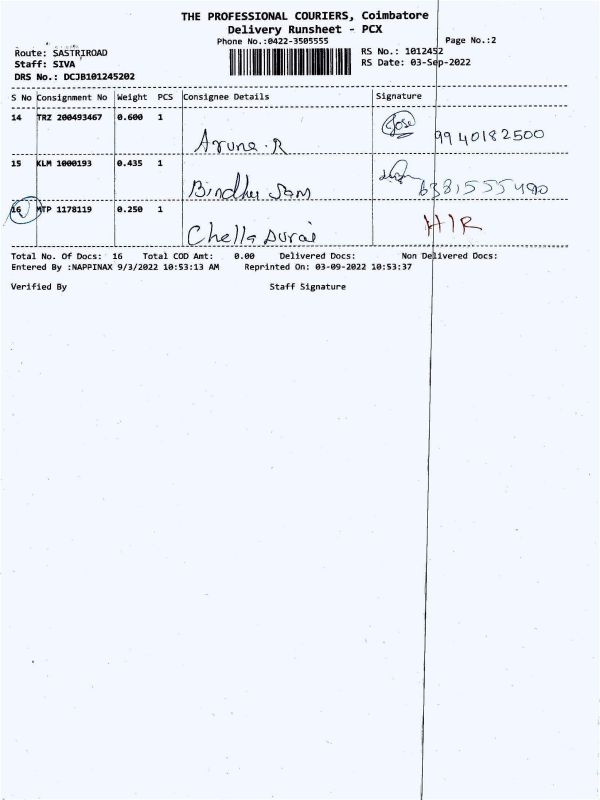 THE PROFESSIONAL COURIERS, Coimbatore
Delivery Runsheet - PCX
Phone No.:0422-3505555 Page No.:2
Route: SASTRIROAD RS No.: 1012452
Staff: SIVA RS Date: 03-Sep-2022
DRS No.: DCJB101245202
S No Consignment No Weight PCS Consignee Details Signature
14 TRZ 200493467 0.600 1 Aruna.R Jose 9940182500
15 KLM 1000193 0.435 1 Bindhu 
16 MTP 1178119 0.250 1 Chella Durai HIR
Total No. Of Docs: 16 Total COD Amt: 0.00 Delivered Docs: Non Delivered Docs:
Entered By :NAPPINAX 9/3/2022 10:53:13 AM Reprinted On: 03-09-2022 10:53:37
Verified By Staff Signature